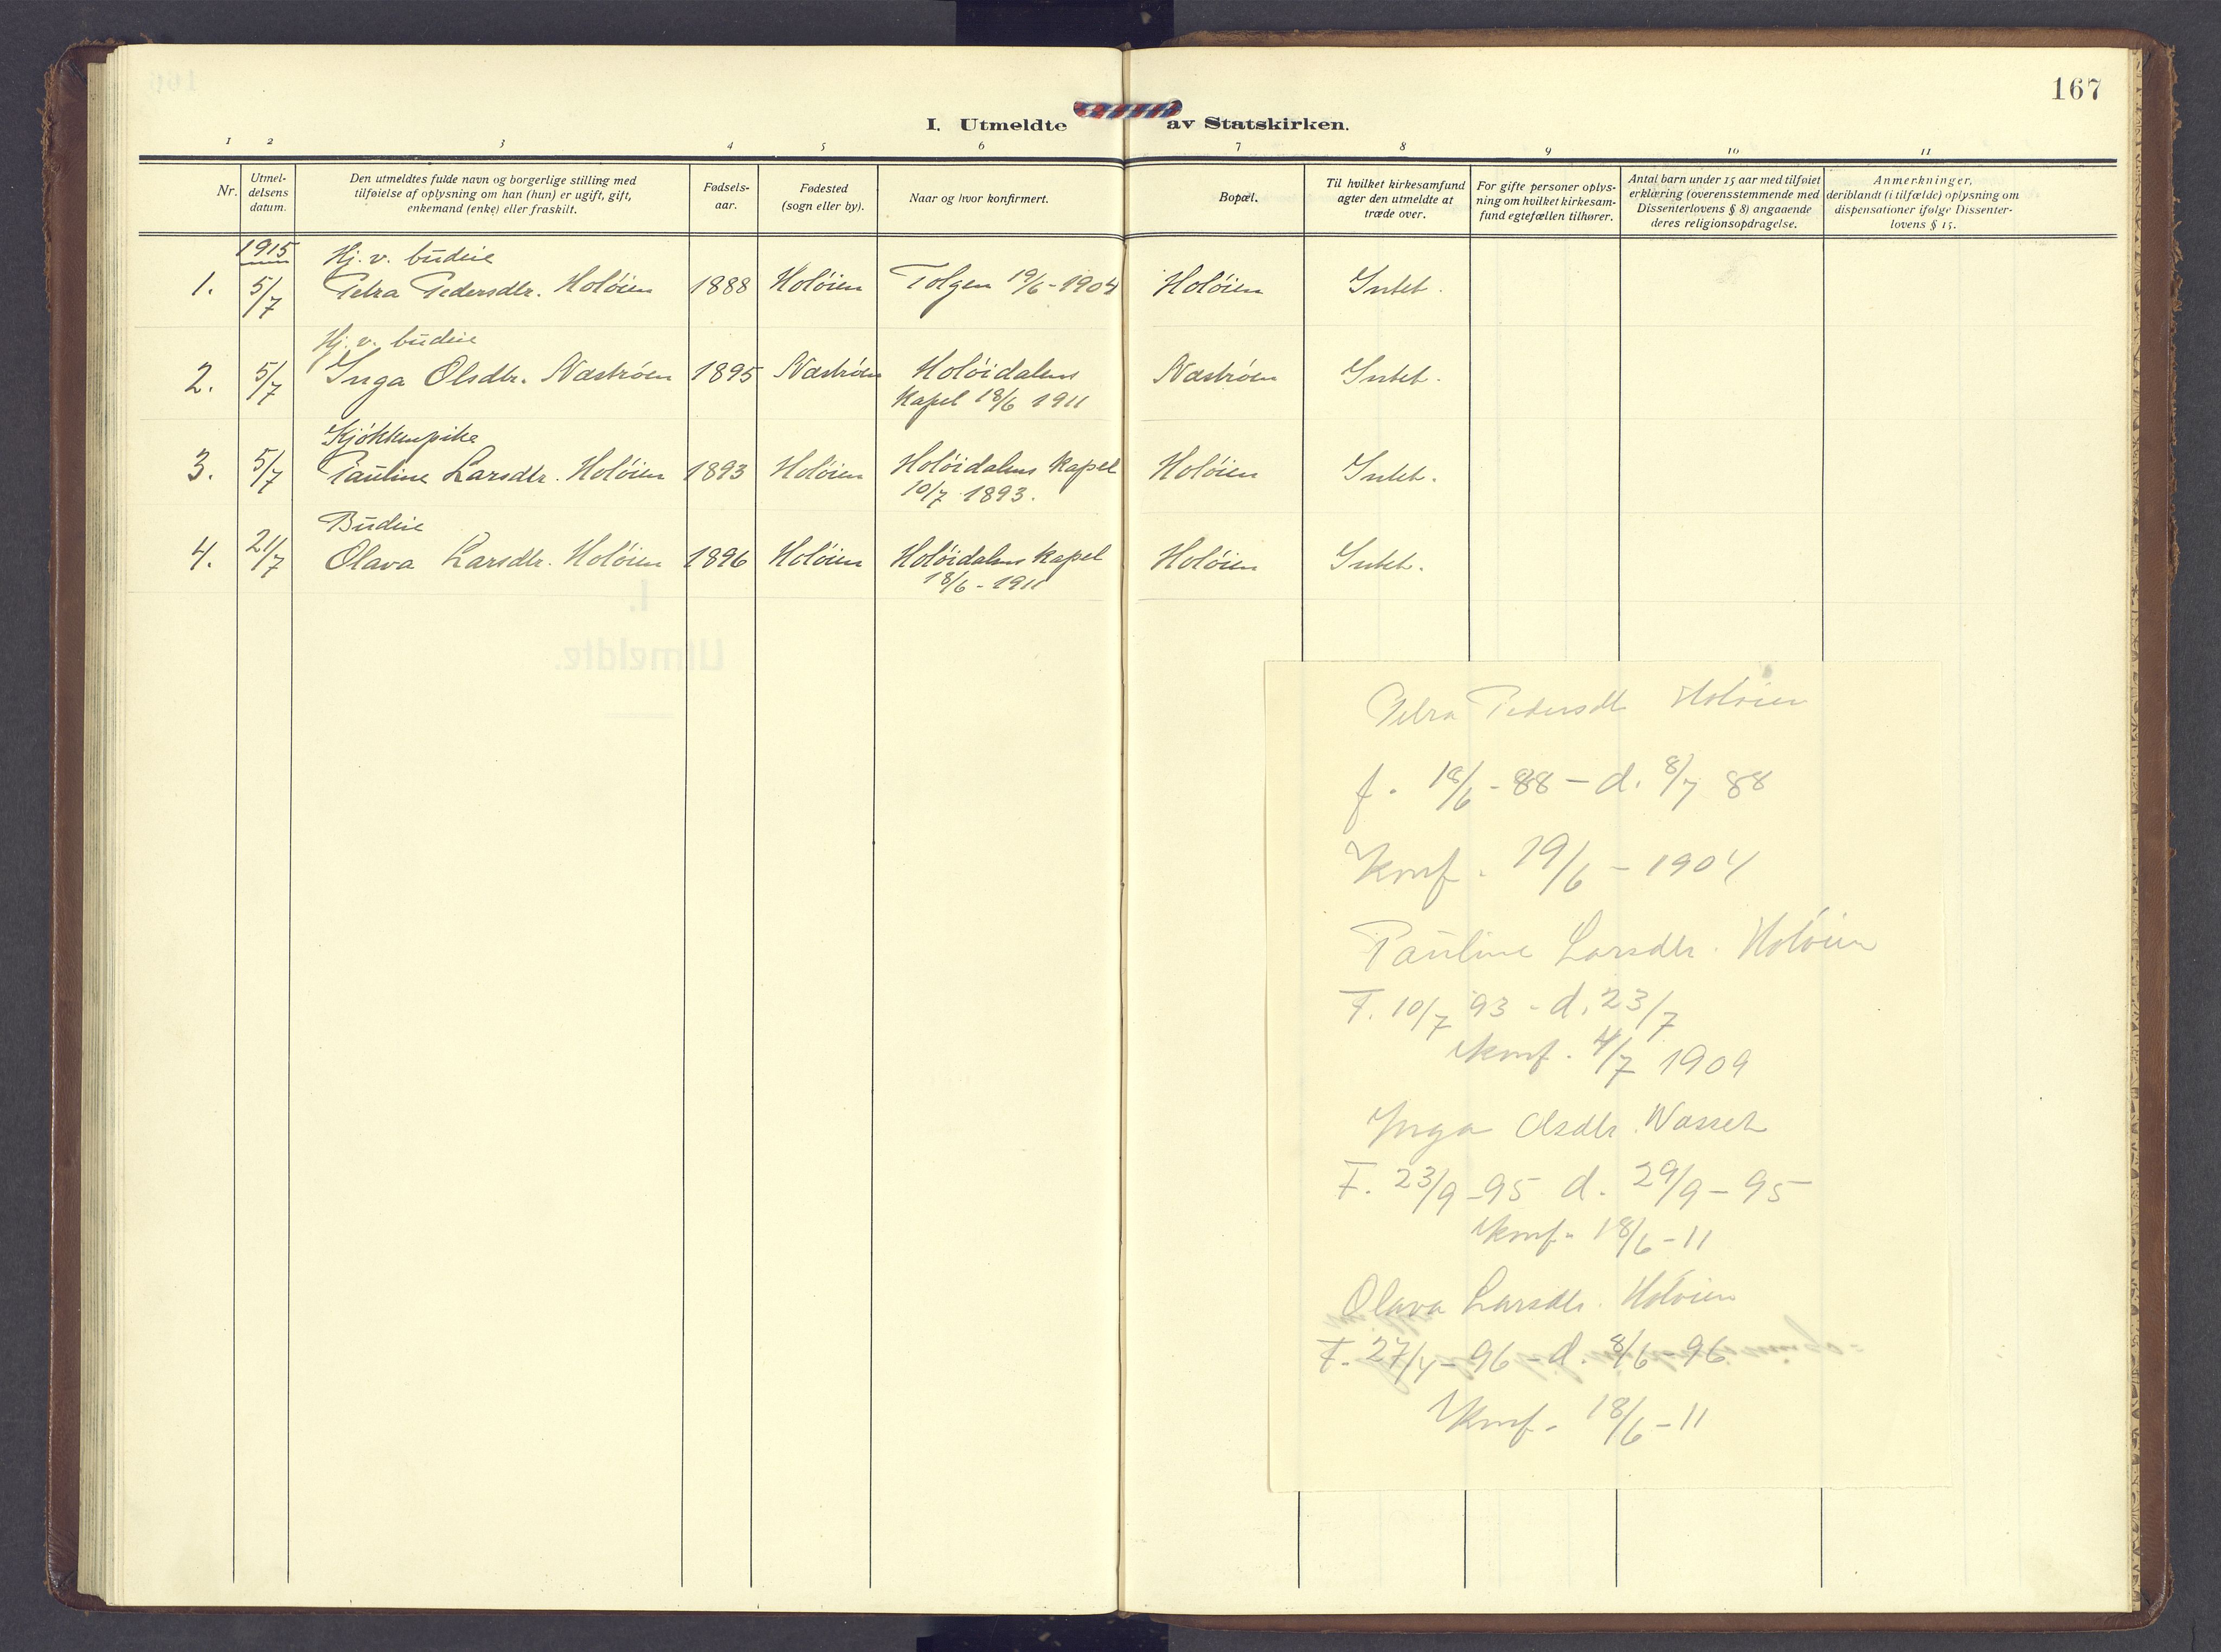 167
I. Utmeldte av Statskirken.
1 2 3 4 5 6 7 8 9 10 11
Nr.
Utmel-
delsens
datum.
Den utmeldtes fulde navn og borgerlige stilling med
tilføielse af oplysning om han (hun) er ugift, gift,
enkemand (enke) eller fraskilt.
Fødsels-
aar.
Fødested
(sogn eller by).
Naar og hvor konfirmert.
Bopæl.
Til hvilket kirkesamfund
agter den utmeldte at
træde over.
For gifte personer oplys-
ning om hvilket kirkesam-
fund egtefællen tilhører.
Antal barn under 15 aar med tilføiet
erklæring (overensstemmende med
Dissenterlovens § 8) angaaende
deres religionsopdragelse.
Anmerkninger,
deriblandt (i tilfælde) oplysning om
dispensationer ifølge Dissenter-
lovens § 15.
1915 Hj. v. budeie
1. 5/7 Petra Pedersdtr. Holöien 1888 Holöien Tolgen 19/6-1904 Holöien Intet.
Hj. v. budeie
2. 5/7 Inga Olsdtr. Næströen 1895 Næströen Holöidalens Næströen Intet.
Kapel 18/6 1911
Kjökkenpike
3. 5/7 Pauline Larsdtr. Holöien 1893 Holöien Holöidalens Kapel Holöien Intet.
10/7 1893.
Budeie
4. 21/7 Olava Larsdtr. Holöien 1896 Holöien Holöidalens Kapel Holöien Intet.
18/6-1911
I.
Utmeldte.
Petra Pedersdtr Holöien
f. 18/6-88 - d. 8/7 88
Konf. 19/6 - 1904
Pauline Larsdtr. Holöien
F. 10/7 93 - d. 23/7
Konf. 4/7 1909
Inga Olsdtr. Vasset
F. 23/9-95 d. 29/9-95
Konf. 18/6-11
Olava Larsdtr. Holöien
F. 27/4-96-d. 8/6-96
Konf. 18/6-11